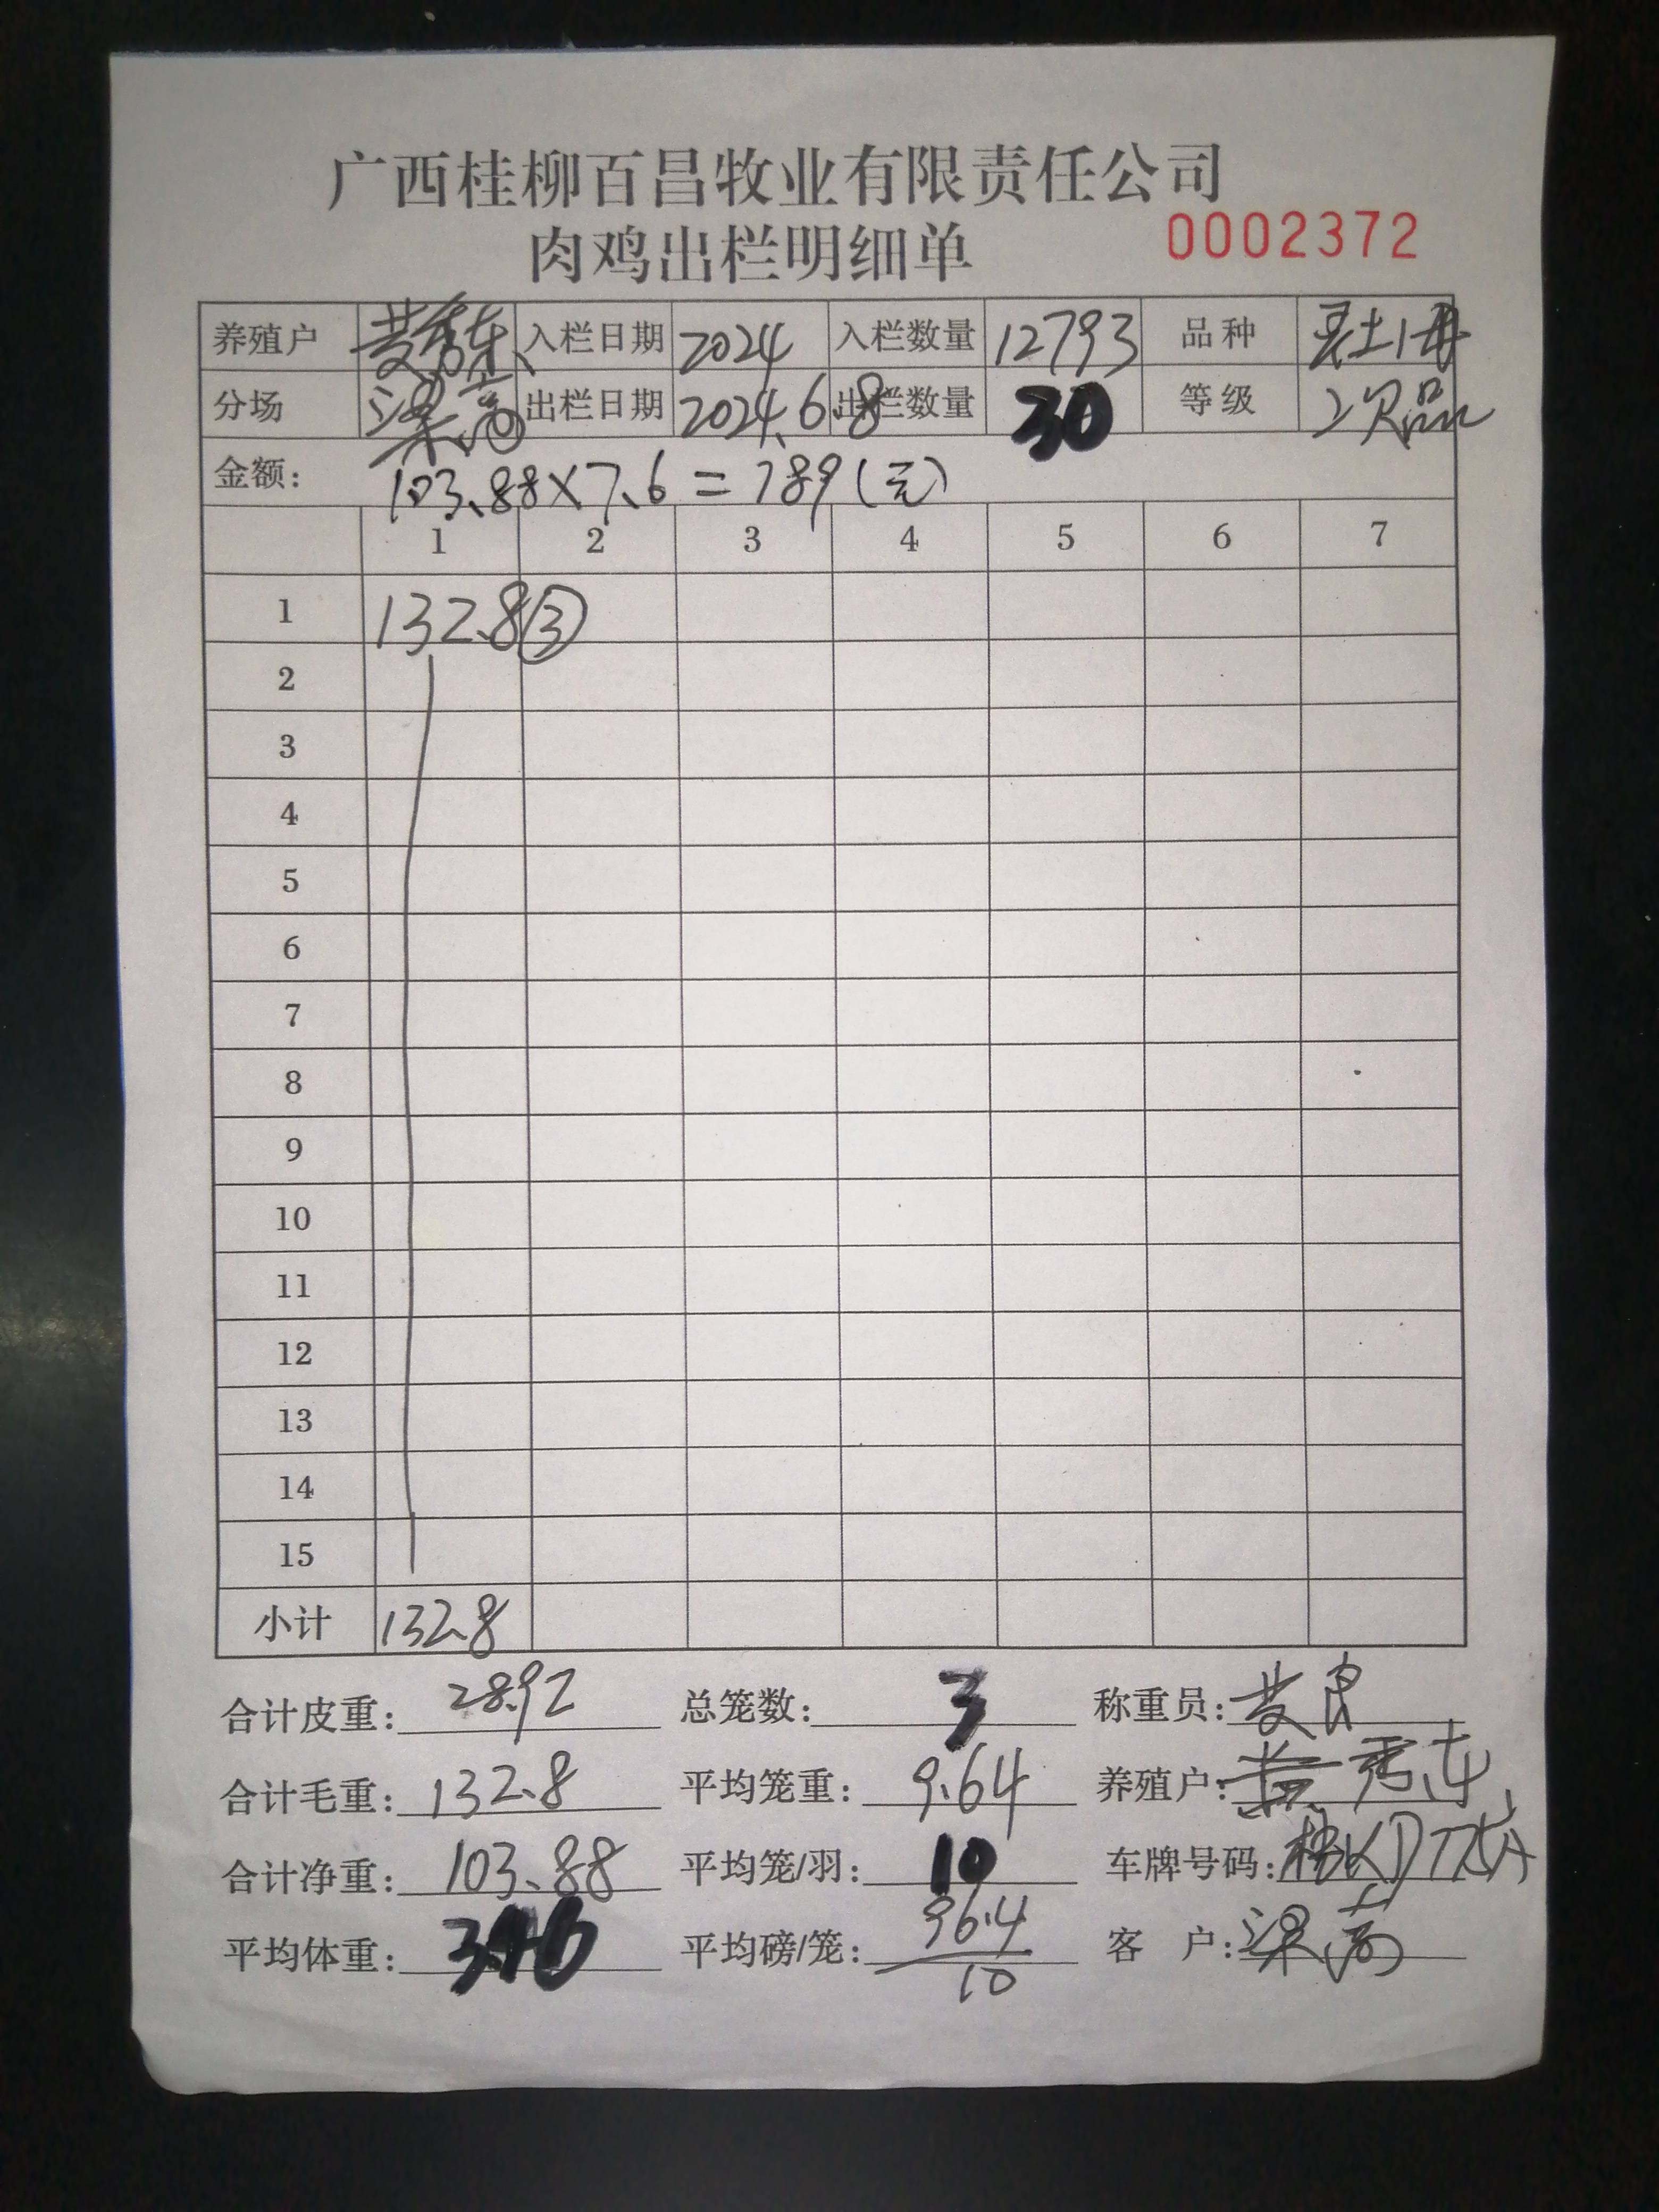 广西桂柳百昌牧业有限责任公司
肉鸡出栏明细单 0002372
养殖户 黄秀东 入栏日期 2024 入栏数量 12793 品种
分场 梁高 出栏日期 2024.6.8 出栏数量 30 等级 次品
金额: 103.88×7.6=789(元)
1 2 3 4 5 6 7
1 132.8③
2
3
4
5
6
7
8
9
10
11
12
13
14
15
小计 132.8
合计皮重: 28.92 总笼数: 3 称重员: 黄良
合计毛重: 132.8 平均笼重: 9.64 养殖户: 黄秀东
合计净重: 103.88 平均笼/羽: 10 车牌号码:
平均体重: 3.46 平均磅/笼: 96.4/10 客 户: 梁高